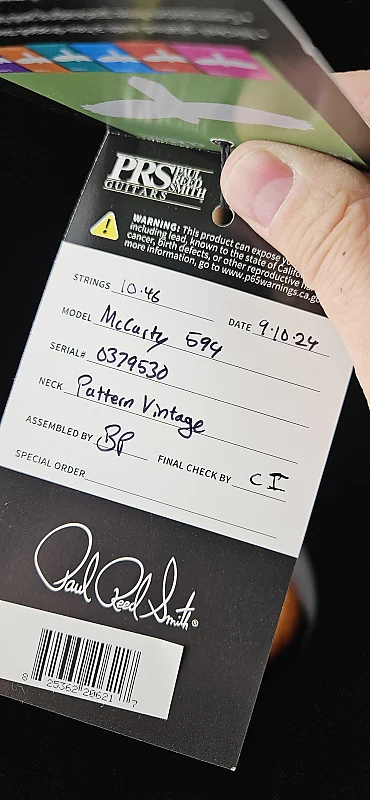 PRS PAUL REED SMITH
GUITARS
WARNING: This product can expose you
including lead, known to the state of Califo
cancer, birth defects, or other reproductive ha
more information, go to www.p65warnings.ca.go
STRINGS 10·46
MODEL McCarty 594 DATE 9·10·24
SERIAL# 0379530
NECK Pattern Vintage
ASSEMBLED BY BP FINAL CHECK BY CI
SPECIAL ORDER
Paul Reed Smith®
8 25362 20621 7